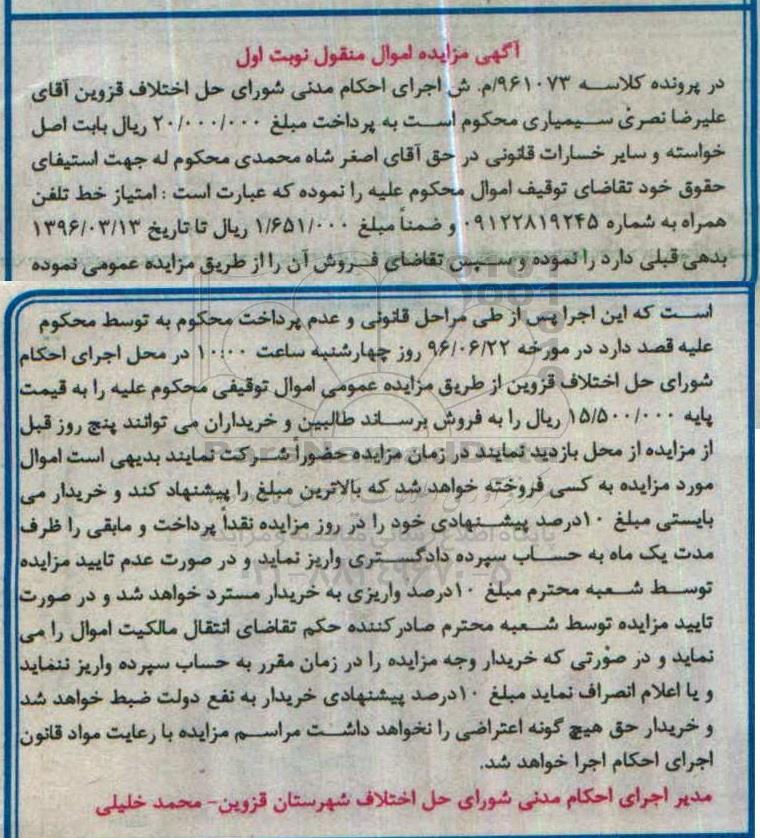 آگهی مزایده اموال منقول نوبت اول
در پرونده کلاسه ۹۶۱۰۷۳/م. ش اجرای احکام مدنی شورای حل اختلاف قزوین آقای
علیرضا نصری سیمیاری محکوم است به پرداخت مبلغ ۲۰/۰۰۰/۰۰۰ ریال بابت اصل
خواسته و سایر خسارات قانونی در حق آقای اصغر شاه محمدی محکوم له جهت استیفای
حقوق خود تقاضای توقیف اموال محکوم علیه را نموده که عبارت است : امتیاز خط تلفن
همراه به شماره ۰۹۱۲۲۸۱۹۲۴۵ و ضمناً مبلغ ۱/۶۵۱/۰۰۰ ریال تا تاریخ ۱۳۹۶/۰۳/۱۳
بدهی قبلی دارد را نموده و سپس تقاضای فروش آن را از طریق مزایده عمومی نموده
است که این اجرا پس از طی مراحل قانونی و عدم پرداخت محکوم به توسط محکوم
علیه قصد دارد در مورخه ۹۶/۰۶/۲۲ روز چهارشنبه ساعت ۱۰:۰۰ در محل اجرای احکام
شورای حل اختلاف قزوین از طریق مزایده عمومی اموال توقیفی محکوم علیه را به قیمت
پایه ۱۵/۵۰۰/۰۰۰ ریال را به فروش برساند طالبین و خریداران می توانند پنج روز قبل
از مزایده از محل بازدید نمایند در زمان مزایده حضوراً شرکت نمایند بدیهی است اموال
مورد مزایده به کسی فروخته خواهد شد که بالاترین مبلغ را پیشنهاد کند و خریدار می
بایستی مبلغ ۱۰درصد پیشنهادی خود را در روز مزایده نقداً پرداخت و مابقی را ظرف
مدت یک ماه به حساب سپرده دادگستری واریز نماید و در صورت عدم تایید مزایده
توسط شعبه محترم مبلغ ۱۰درصد واریزی به خریدار مسترد خواهد شد و در صورت
تایید مزایده توسط شعبه محترم صادرکننده حکم تقاضای انتقال مالکیت اموال را می
نماید و در صورتی که خریدار وجه مزایده را در زمان مقرر به حساب سپرده واریز ننماید
و یا اعلام انصراف نماید مبلغ ۱۰درصد پیشنهادی خریدار به نفع دولت ضبط خواهد شد
و خریدار حق هیچ گونه اعتراضی را نخواهد داشت مراسم مزایده با رعایت مواد قانون
اجرای احکام اجرا خواهد شد.
مدیر اجرای احکام مدنی شورای حل اختلاف شهرستان قزوین- محمد خلیلی